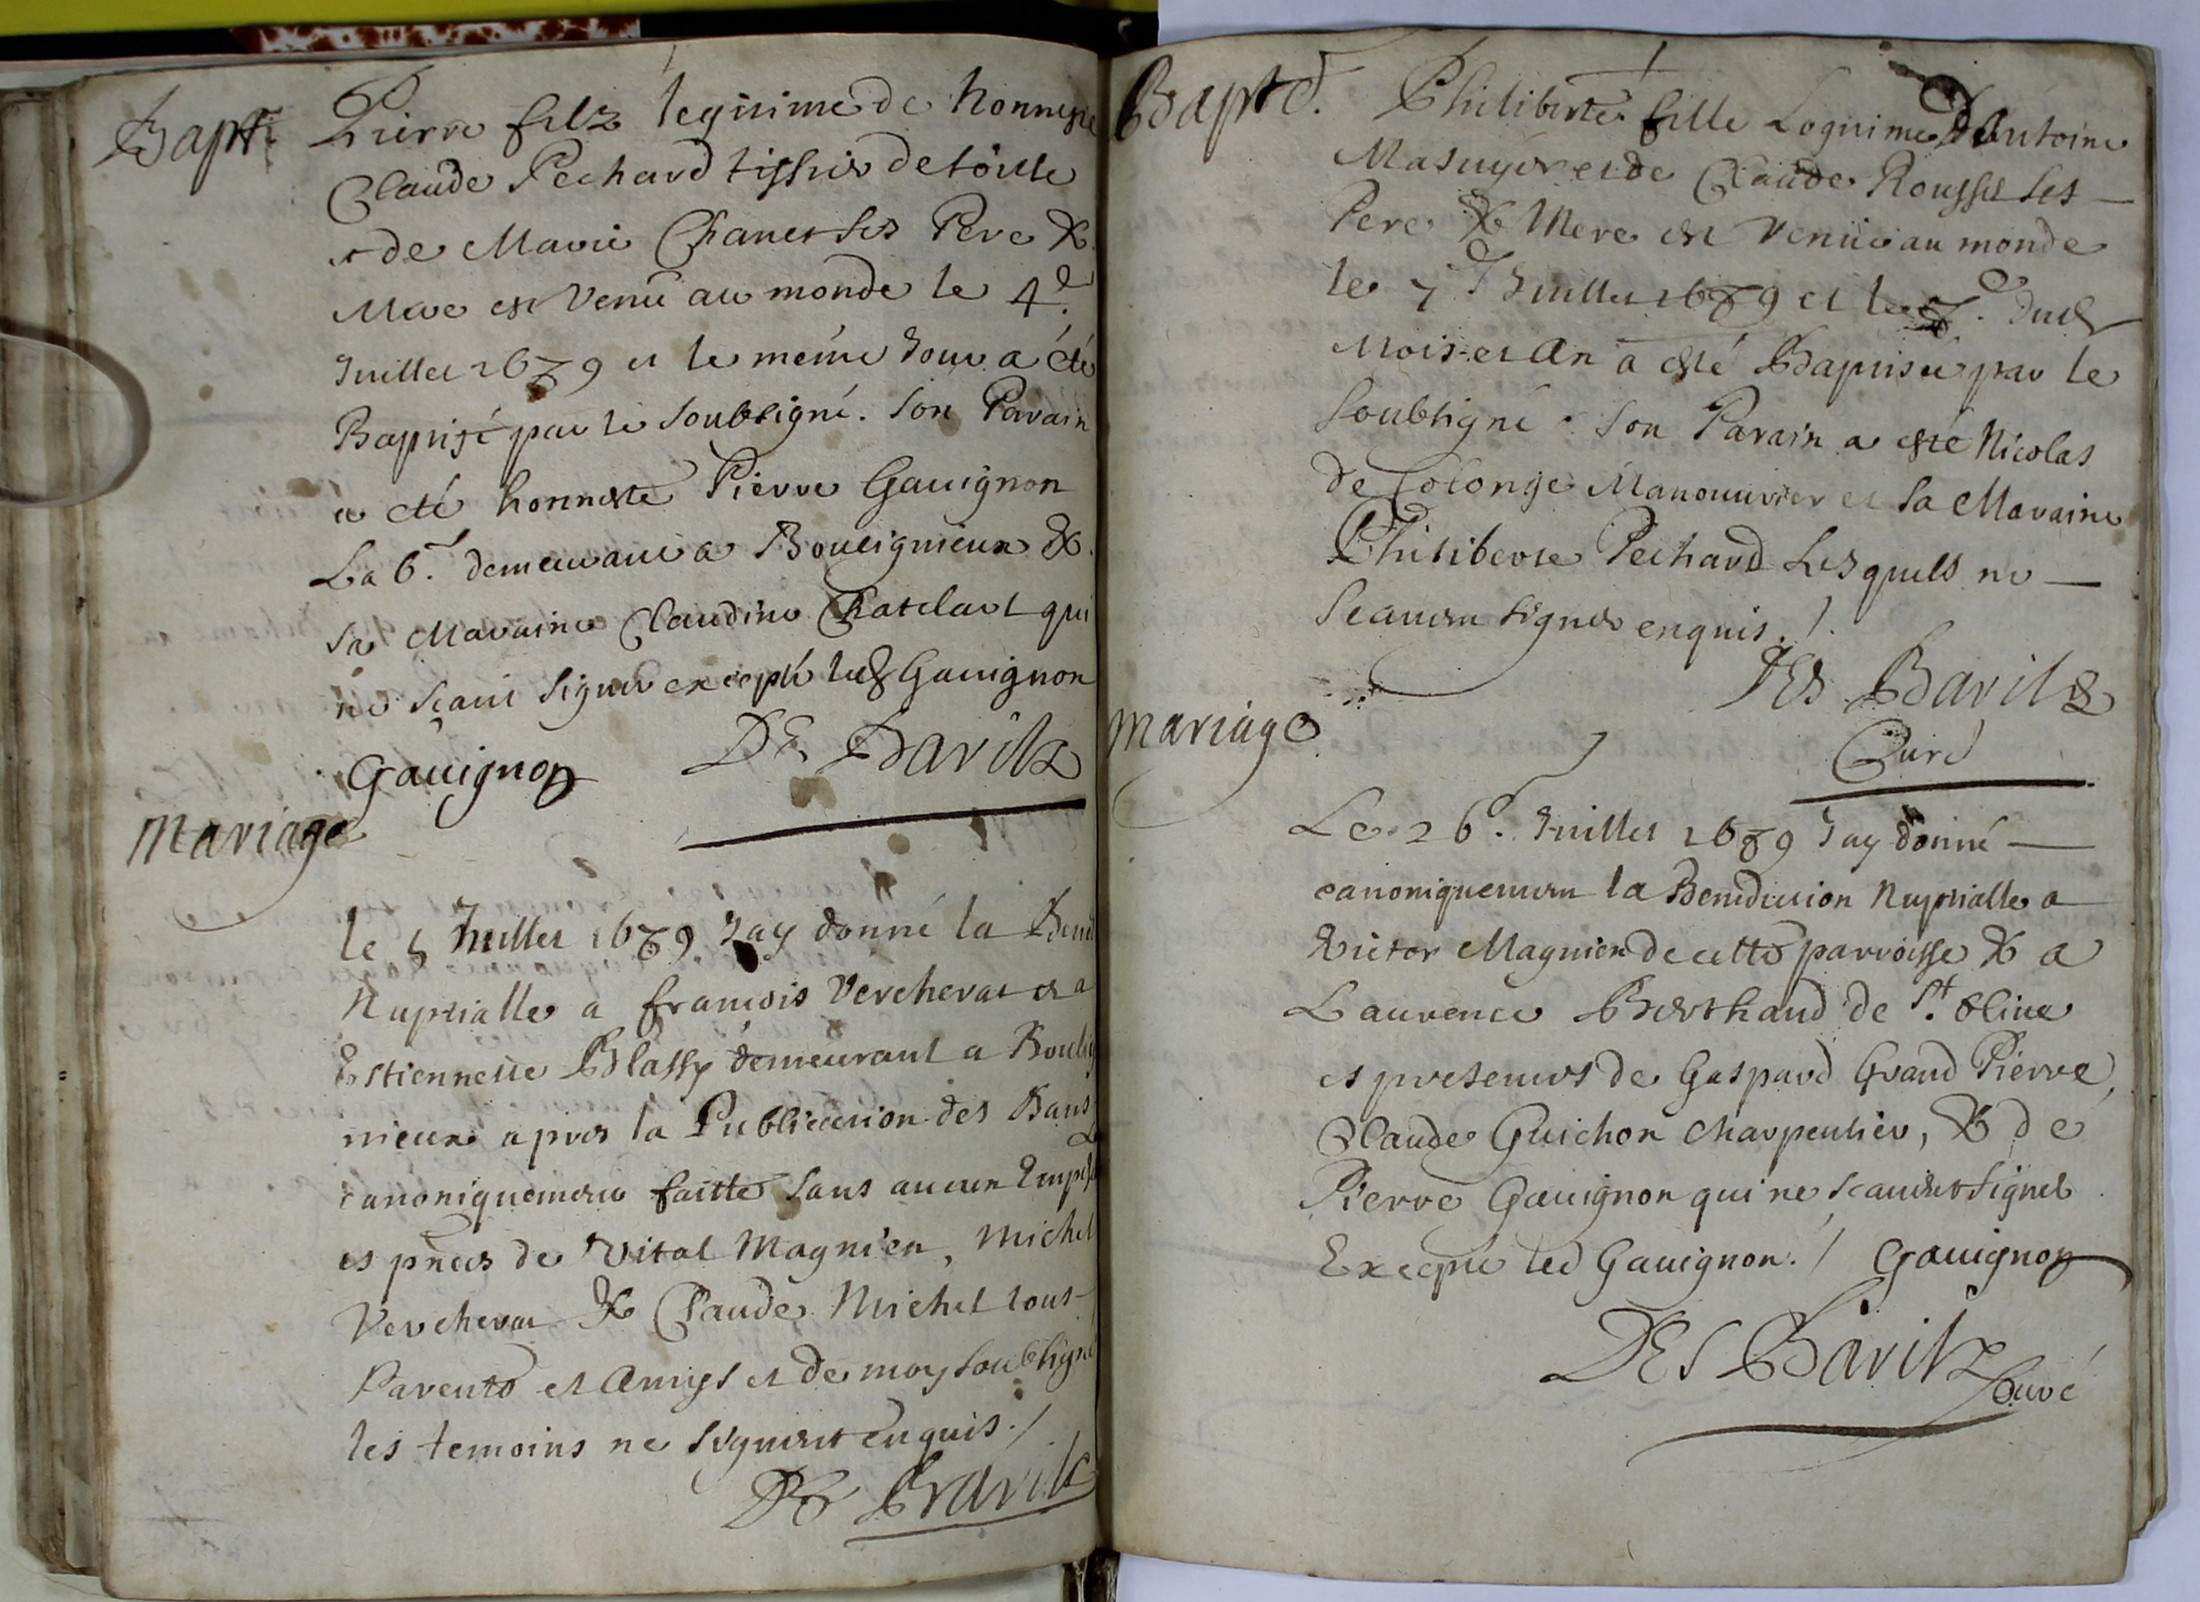 Bapt.
Pierre filz legitime de honneste
Claude Pechard tissier de toille
et de Marie Chanet ses Pere &
Mere est Venu au monde le 4e.
Juillet 1689 et le même Jour a été
Baptisé par le soubsigné. Son Parain
a été honneste Pierre Gauignon
Lab.r demeurant a Bouligneux &
sa Maraine Claudine Chatelard qui
ne scait signer excepté led Gauignon
Gauignon
De Bavilz
Mariage
le 5 Juillet 1689. Jay donné la Bened
Nuptialle a francois Vercherat et a
Estiennette Blassy demeurant a Boulig
nieux apres la Publication des Bans
canoniquement faitte sans aucun Empesch
es pñces de Vital Magnien, Michel
Vercherat & Claude Michel tous
Parents et Amys et de moy soubsigné
les temoins ne signent enquis./
De Bavilz
Baptê.
Philiberte fille Legitime d'Antoine
Masuyer et de Claude Rousset ses
Pere & Mere est Venüe au monde
le 7e Juillet 1689 et le e. dud
Mois et An a esté Baptisée par le
soubsigné. Son Parain a esté Nicolas
de Colonge Manouurier et sa Maraine
Philiberte Pechard Lesquels ne
scauent signer enquis./.
DES Bavilz
Curé
Mariage
Le 26e. Juillet 1689 Jay donné
canoniquement la Benediction Nuptialle a
Victor Magnien de cette parroisse & a
Laurence Berthaud de St. Oliue
es presences de Gaspard Grand Pierre,
Claude Guichon Charpentier, & de
Pierre Gauignon qui ne scauent signer
Excepté led Gauignon./ Gauignon
DES Bavilz Curé